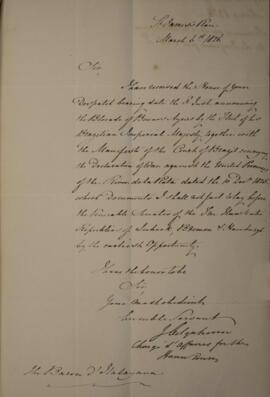 St James's Place
March 6th 1826
Sir
I have received the Honor of Your
Despatch bearing date the Inst announcing
the Blockade of Buenos Ayres by the Fleet of his
Brazilian Imperial Majesty, together with
the Manifesto of the Court of Brazil
the Declaration of War against the United Provinces
of the River de la Plata dated the 10 Decr 1825
which Documents I shall not fail to lay before
the Senates of the Hanseatic
Republics of Lubeck, Bremen & Hamburgh
by the earliest Opportunity.
I have the honor to be
Sir,
Your most obedient
humble Servant
J Colquhoun
Chargé d'Affaires for the
Hanse Towns
The Baron d'Itabayana